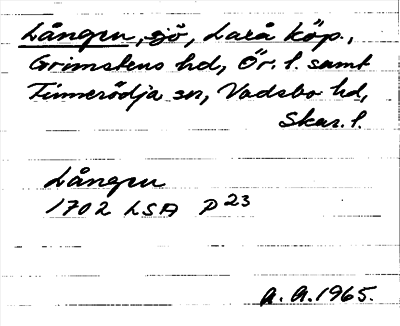 Lången, sjö, Laxå köp.,
Grimstens hd, Ör. l. samt
Finnerödja sn, Vadsbo hd,
Skar. l.
Lången
1702 LSA P 23
A. A. 1965.